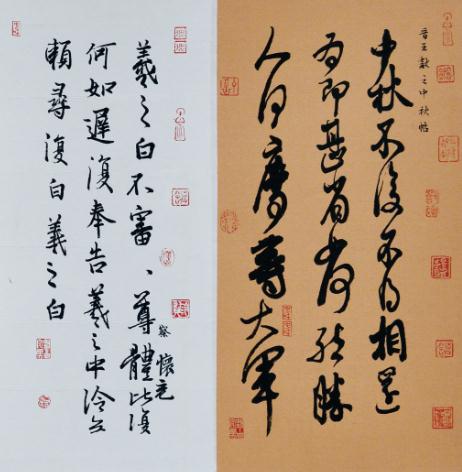 晋王献之中秋帖
中秋不復不得相還
为即甚省如何然勝
人何慶等大軍
羲之白不審、尊體比復
何如遲復奉告羲之中冷無
賴尋復白羲之白